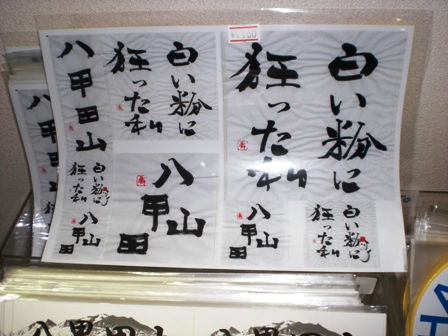 白い粉に
狂った私
八甲田山
白い粉に
狂った私
八甲田山
白い粉に
狂った私
八甲田山
八甲田山
白い粉に
狂った私
八甲田山